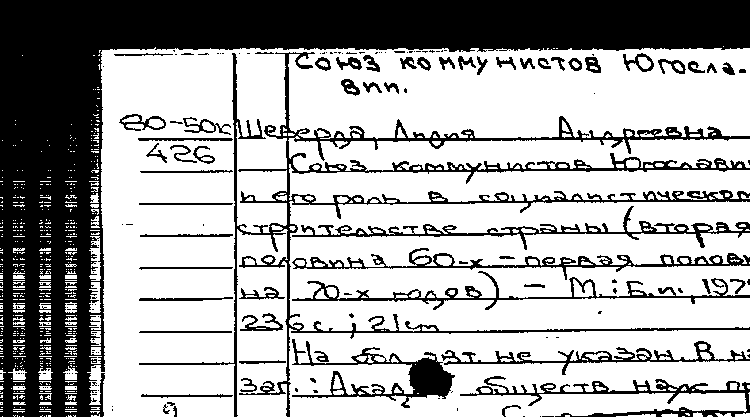 Союз коммунистов Югосла-
вии.
80-50к Шеверда, Лидия Андреевна
426 Союз коммунистов Югославии
и его роль в социалистическом
строительстве страны (вторая
половина 60-х - первая полови
на 70-х годов). - М.: Б.и., 197
236 с.; 21 cm
На обл. авт. не указан. В на
заг.: Акад. обществ. наук пр
9